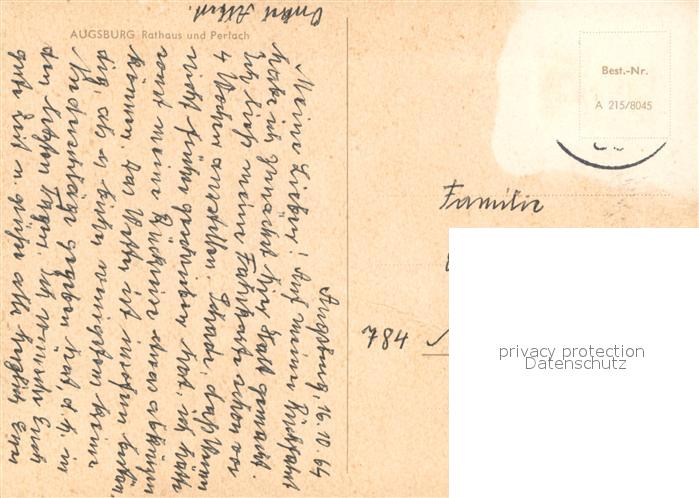 AUGSBURG Rathaus und Perlach
Augsburg, 16.10.64
Meine Lieben! Auf meiner Rückfahrt
habe ich zunächst hier Halt gemacht.
Ich ließ meine Fahrkarte schon vor
4 Wochen ausstellen. Schade, daß
nicht früher geschrieben hat, ich hätte
sonst meine Rückreise etwas abkürzen
können. Das Wetter ist insofern
als es bisher wenigstens keine
Niederschläge gegeben hat, d. h. in
den letzten Tagen. Ich wünsche Euch
gute Zeit u. grüße alle herzlich Euer
Onkel Albert.
Best.-Nr.
A 215/8045
Familie
784
privacy protection
Datenschutz